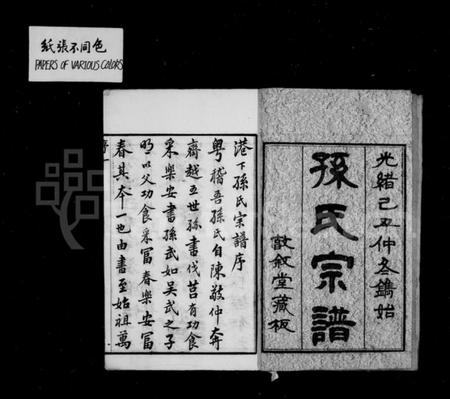 紙張不同色
PAPERS OF VARIOUS COLORS
光緒己丑仲冬鐫始
孫氏宗譜
敦叙堂藏板
港下孫氏宗譜序
粵稽吾孫氏自陳敬仲奔
齊越五世孫書伐莒有功食
采樂安書孫武如吴武之子
明以父功食采富春樂安富
春其本一也由書至始祖萬